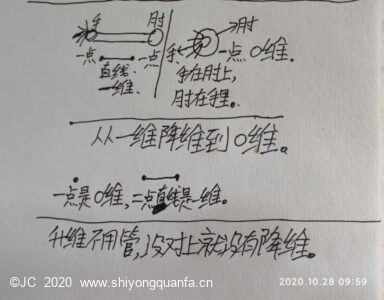 手 肘 肘
一点 一点 手 一点 0维.
直线. 手在肘上,
一维. 肘在手里.
从一维降维到0维。
一点是0维,二点直线是一维.
升维不用管,没对上就没有降维。
©JC 2020 www.shiyongquanfa.cn
2020.10.28 09:59